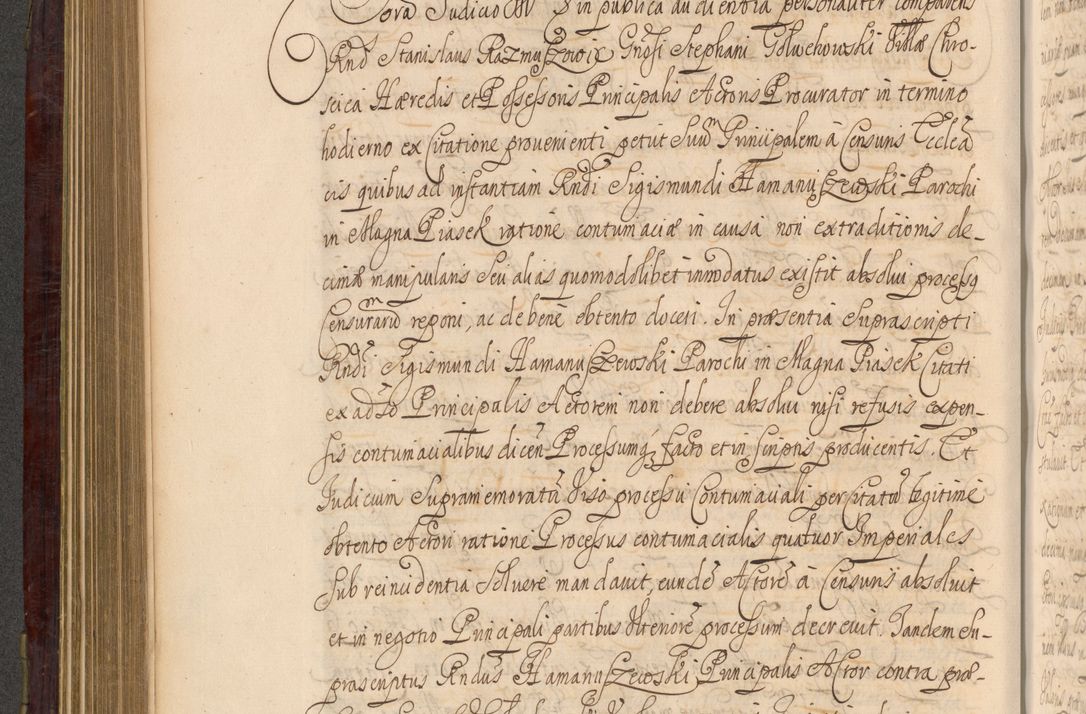 Cora Judicio in publica audientia personaliter comparens
Rndꝰ Stanislaus Razmuszowic Gnosi Stephani Goluchowski Villæ Chro-
scica Hæredis et Possessoris Principalis Actoris Procurator in termino
hodierno ex Citatione provenienti petiit Suum Principalem à Censuris Ecclea
cis quibus ad instantiam Rndi Sigismundi Hamanuszewski Parochi
in Magna Piasek ratione contumaciæ in causa non extraditionis de-
cimæ manipularis Seu alias quomodolibet innodatus existit absolui processq
Censurarum reponi, ac de bene obtento doceri. In præsentia Suprascripti
Rndi Sigismundi Hamanuszewski Parochi in Magna Piasek Citati
ex adso Principalis Actorem non debere absolui nisi refusis expen-
sis contumacialibus dicen Processumq facto et in scriptis producentis. Et
Judicium Supramemoratu Viso processu Contumaciali per Citatum legitime
obtento Actori ratione Processus contumacialis quatuor Imperiales
Sub reincidentia Solvere mandavit, eundo Actore à Censuris absoluit
et in negotio Principali partibus Ulteriore processum decrevit. Tandem Su-
prascriptus Rndus Hamanuszewski Principalis Actor contra præ-